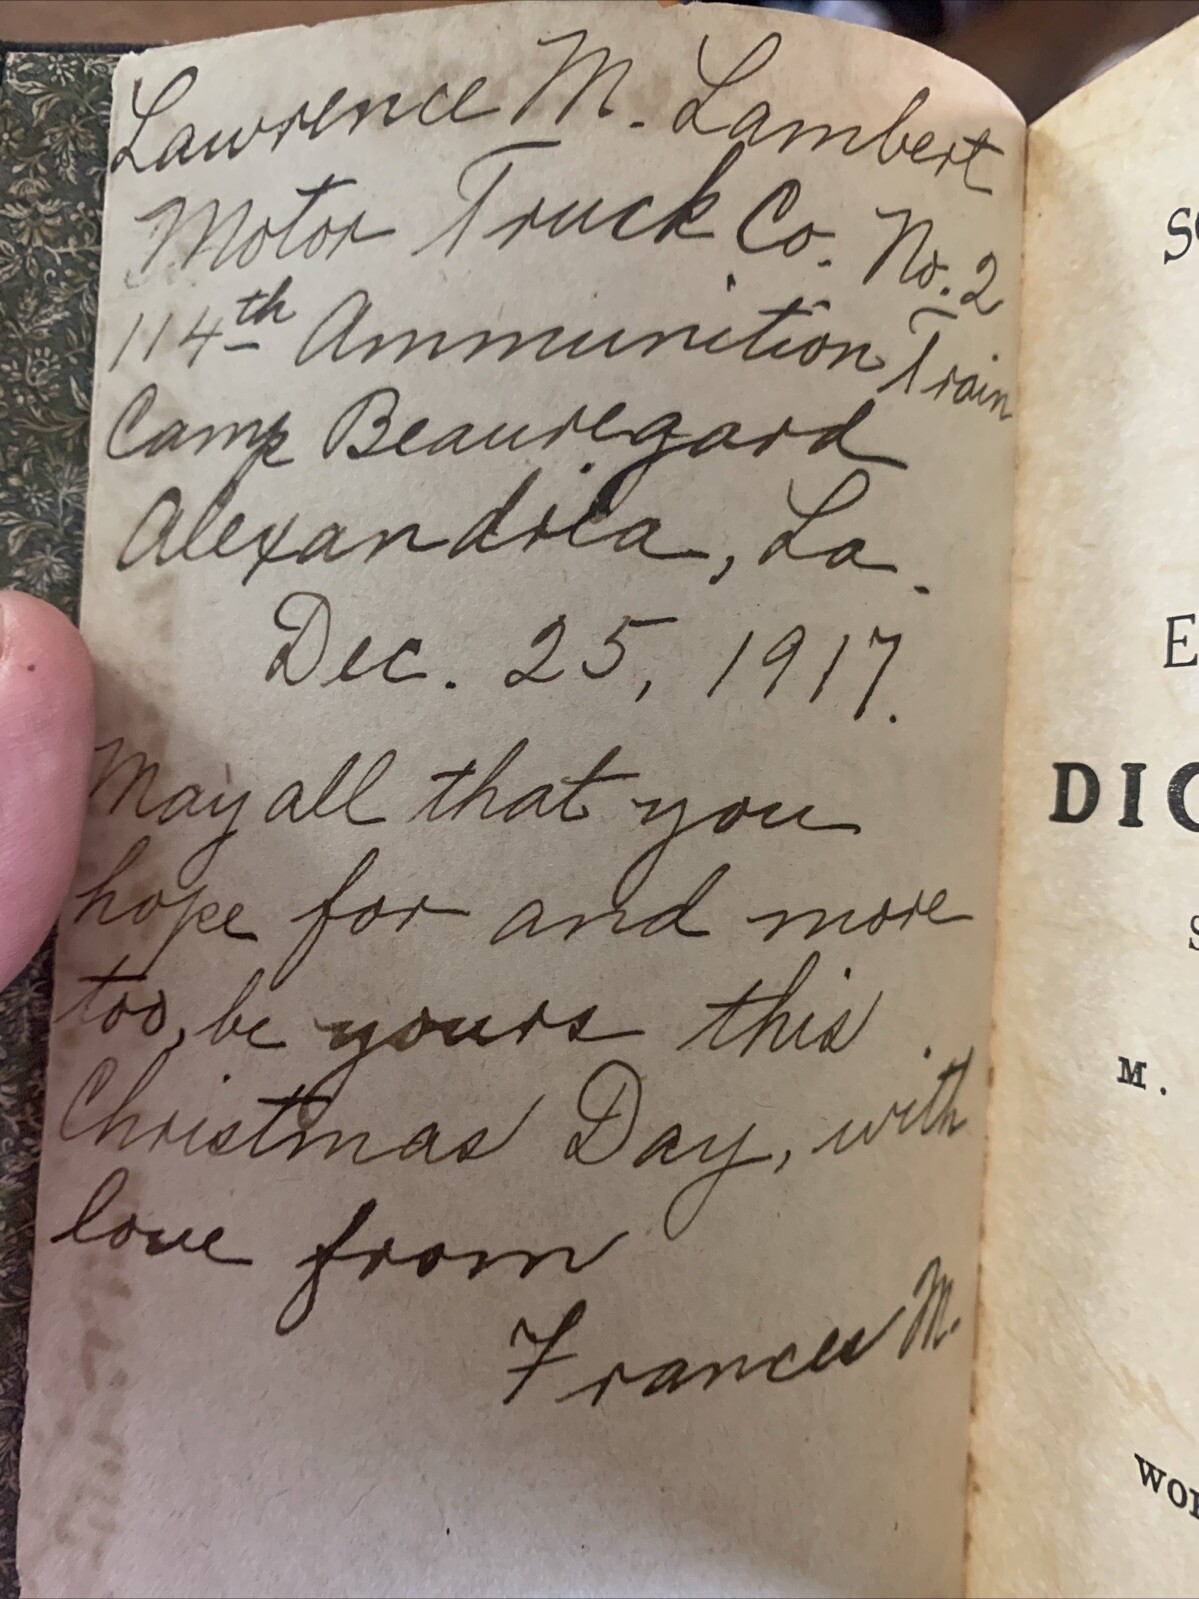 Lawrence M. Lambert
Motor Truck Co. No. 2
114th Ammunition Train
Camp Beauregard
Alexandria, La.
Dec. 25, 1917.
May all that you
hope for and more
too, be yours this
Christmas Day, with
love from
Frances M.
E
DIC
S
M.